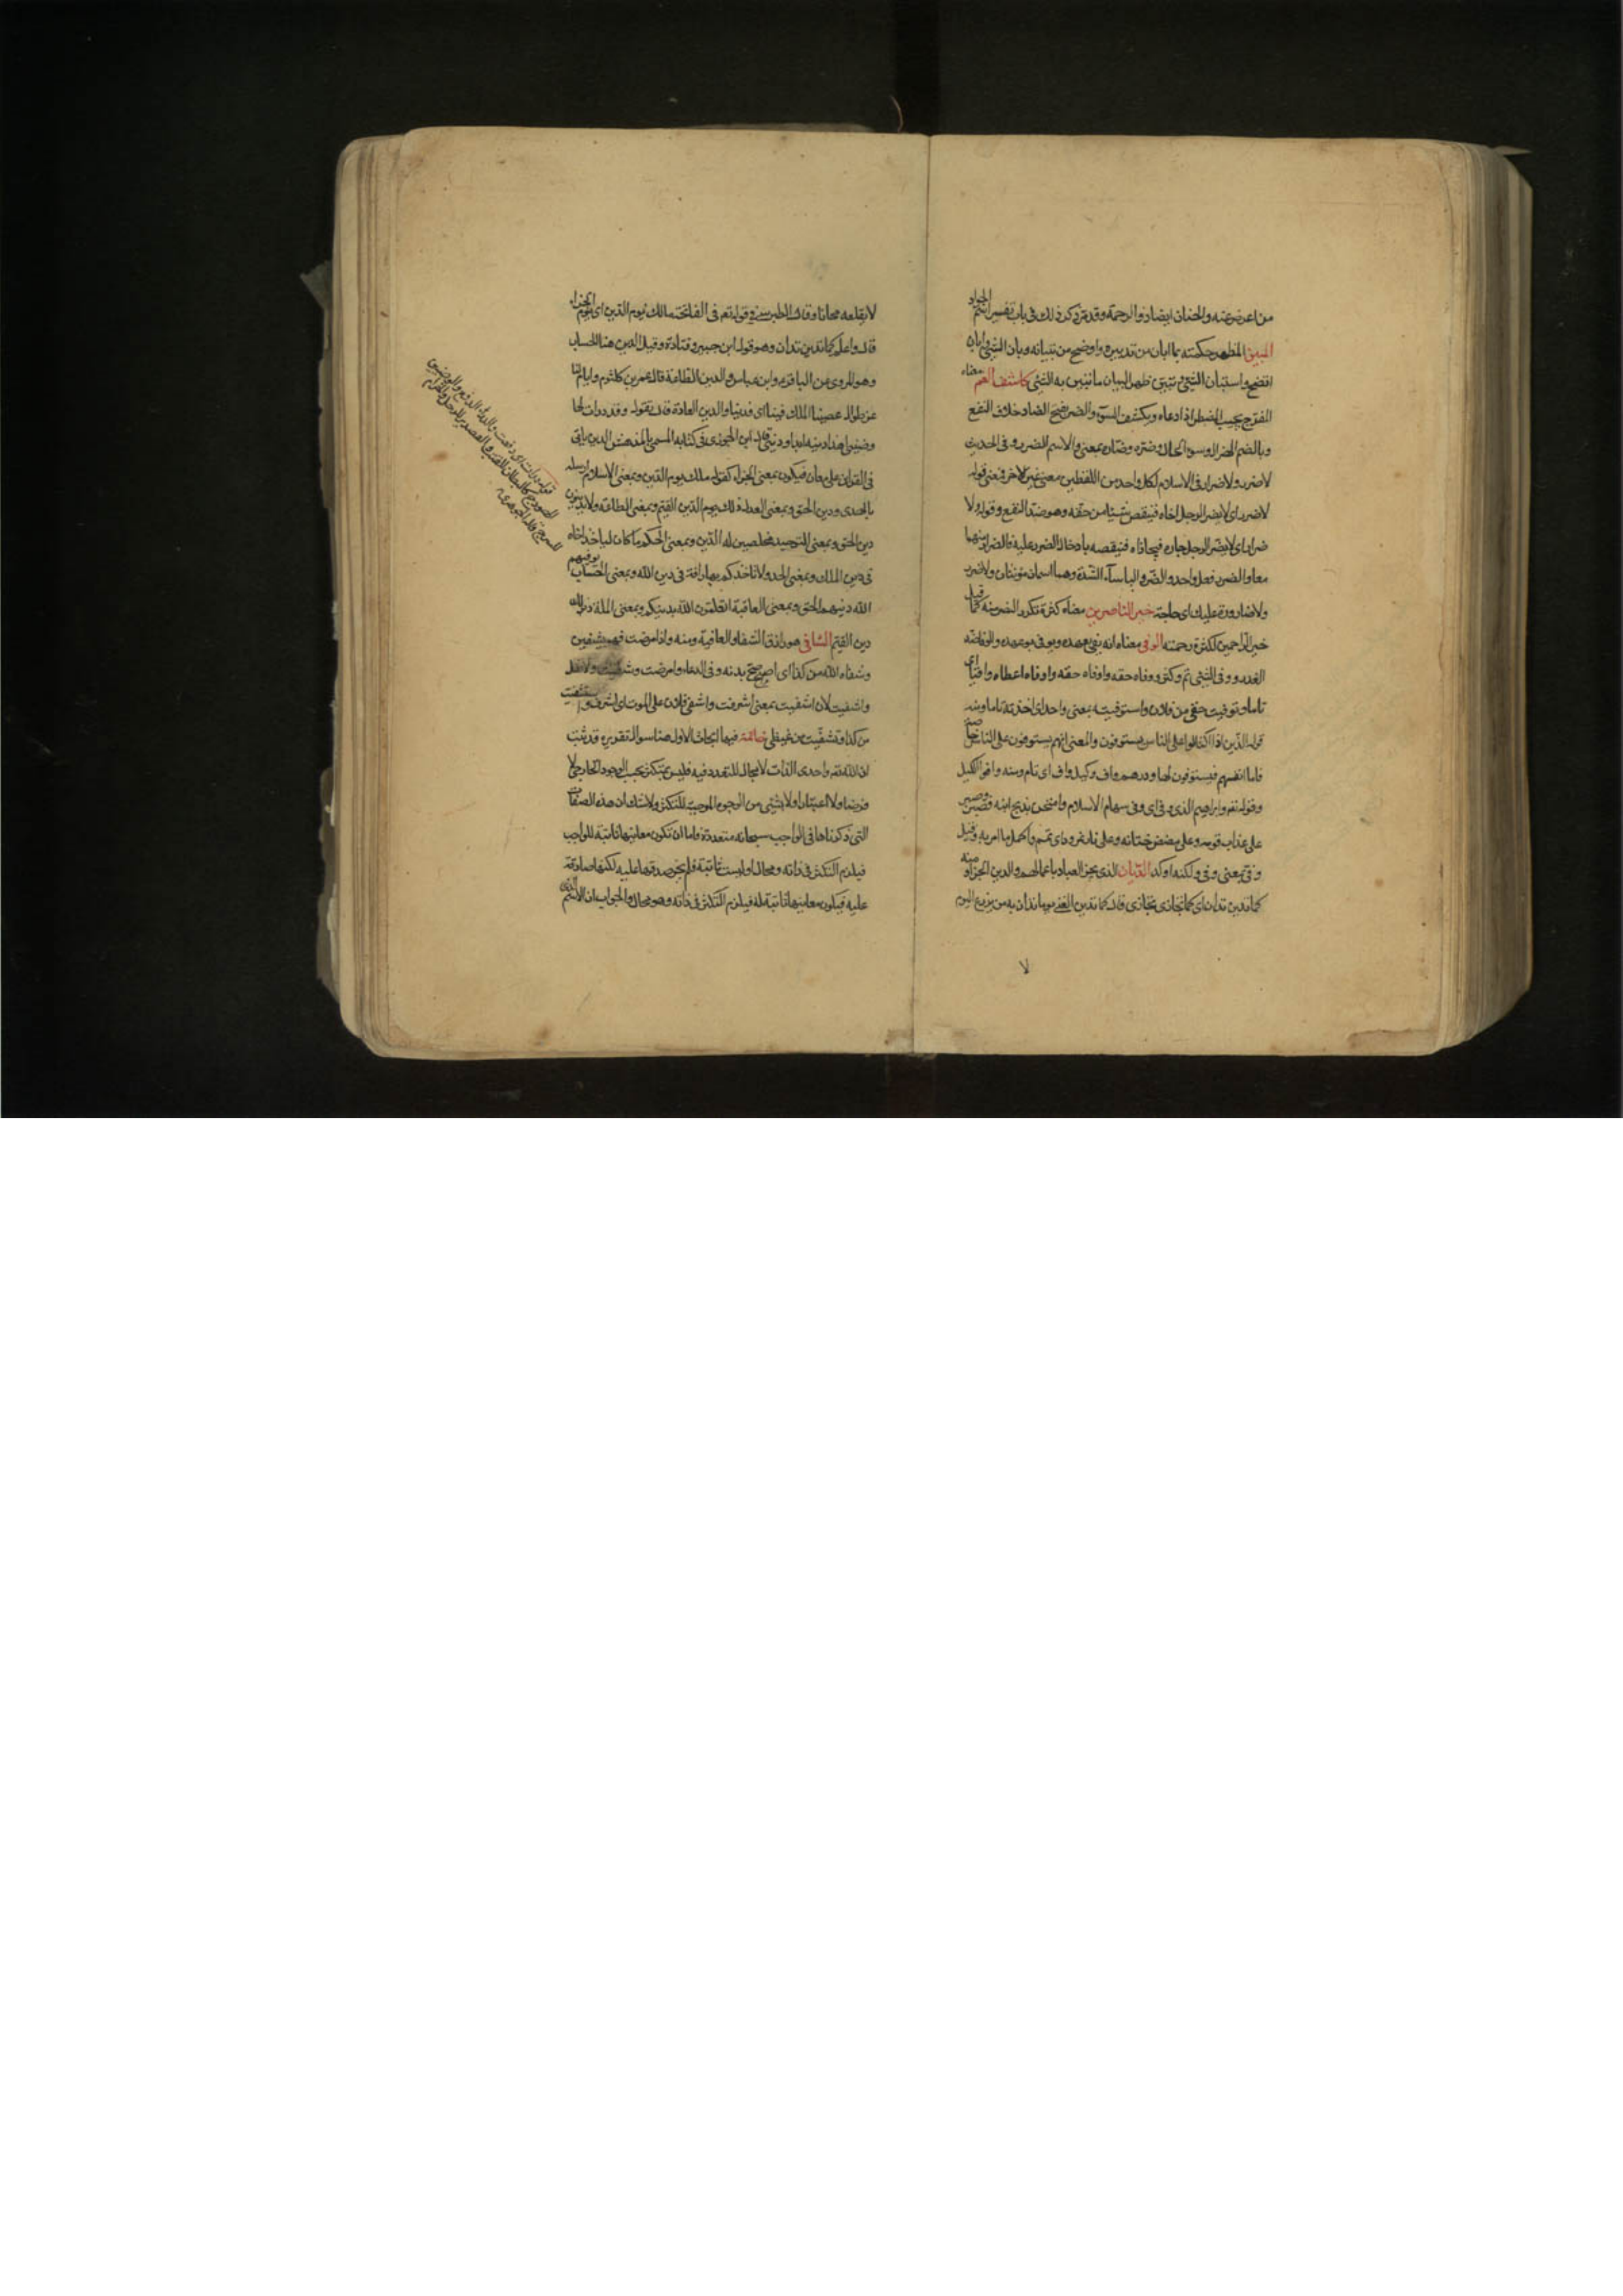 من اعرض عنه والحنان ايضا ذو الرحمة وقد مر ذكر ذلك في باب تفسير اسم الجواد
المبين المظهر حكمته بما ابان من تدبيره واوضح من تبيانه وبان الشئ وابان
اتضح واستبان الشئ وتبين ظهر البيان ما تبين به الشئ كاشف الغم معناه
المفرج يجيب المضطر اذا دعاه ويكشف السوء والضر بفتح الضاد خلاف النفع
وبالضم الهزال وسوء الحال وضره وضاره بمعنى والاسم الضرر وفي الحديث
لا ضرر ولا ضرار في الاسلام لكل واحد من اللفظين معنى غير الاخر فمعنى قوله
لا ضرر اى لا يضر الرجل اخاه فينقص شيئا من حقه وهو ضد النفع وقوله ولا
ضرار اى لا يضر الرجل جاره فيجازاه فينقصه بادخال الضرر عليه والضرار منهما
معا والضرر فعل واحد والضر والباساء الشدة وهما اسمان مؤنثان ولا ضرر
ولا ضارورة عليك اى حاجة خير الناصرين معناه كثرة تكرر النصر منه كما قيل
خير الراحمين لكثرة رحمته الوفي معناه انه يفي بعهده ويوفي بوعده والوفا ضد
الغدر ووفى الشئ تم وكثر ووفاه حقه واوفاه حقه واوفاه اعطاه وافيا اى
تاما وتوفيت حقي من فلان واستوفيته بمعنى واحد اى اخذته تاما ومنه
قوله الذين اذا اكتالوا على الناس يستوفون والمعنى انهم يستوفون على الناس
فاما انفسهم فيستوفون لها ودرهم واف وكيل واف اى تام ومنه واوفوا الكيل
وقوله تعم وابراهيم الذي وفى اى وفى سهام الاسلام وامتحن بذبح ابنه فصبر وصبر
على عذاب قومه وعلى مضض ختانه وعلى نار نمرود اى تمم واكمل ما امر به وقيل
وفى بمعنى وفى ولكنه اوكد الديان الذي يجزي العباد باعمالهم والدين الجزاء ومنه
كما تدين تدان اى كما تجازي تجازى قال كما يدين الفتى يوما يدان به من يزرع الثوم
لا
لا يقلعه ريحانا وقال الطبرسي في قوله تعم في الفاتحة مالك يوم الدين اى يوم الجزاء
قال واعلم كما تدين تدان وهو قول ابن جبير وقتادة وقيل الدين هنا الحساب
وهو المروي عن الباقر وابن عباس والدين الطاعة قال عمرو بن كلثوم وايام لنا
غر طوال عصينا الملك فيها ان ندينا والدين العادة قال تقول وقد درات لها
وضيني اهذا دينه ابدا وديني قال ابن الجوزي في كتابه المسمى بالمدهش الدين ياتي
في القران على معان فيكون بمعنى الجزاء كقوله ملك يوم الدين وبمعنى الاسلام ارسله
بالهدى ودين الحق وبمعنى العدد ذلك الدين القيم وبمعنى الطاعة ولا يدينون
دين الحق وبمعنى التوحيد مخلصين له الدين وبمعنى الحكم ما كان لياخذ اخاه
في دين الملك وبمعنى الحد ولا تاخذكم بهما رافة في دين الله وبمعنى الحساب يوفيهم
الله دينهم الحق وبمعنى العاقبة اتعلمون الله بدينكم وبمعنى الملة ذلك
دين القيم الشافي هو رازق الشفا والعافية ومنه واذا مرضت فهو يشفين
وشفاه الله من كذا اى اصح بدنه وفي الدعاء وامرضت وشفيت ولا تقل
واشفيت لان اشفيت بمعنى اشرفت واشفى فلان على الموت اى اشرف واستشفيت
من كذا وتشفيت من غيظي خاتمة فيها ابحاث الاول هنا سوال تقريره قد ثبت
ان الله تعم واحدي الذات لا مجال للتعدد فيه فليس بمتكثر بحسب الوجود الخارجي لا
فرضا ولا اعتبارا ولا بشئ من الوجوه الموجبة للتكثر ولا شك ان هذه الصفات
التي ذكرناها في الواجب سبحانه متعددة فاما ان تكون معانيها ثابتة للواجب
فيلزم التكثر في ذاته وهو محال او ليست ثابتة فلم يجز صدقها عليه لكنها صادقة
عليه فيكون معانيها ثابتة له فيلزم التكثر في ذاته وهو محال والجواب ان الاسم الذي
قوله درات اى دفعت والدرء الدفع والوضين
للهودج كالبطان للقتب والتصدير للرحل والحزام
للسرج قاله الجوهري